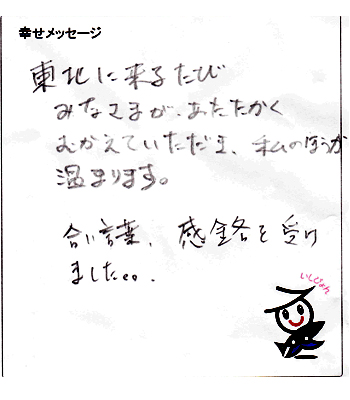 幸せメッセージ
東北に来るたび
みなさまが、あたたかく
むかえていただき、私のほうが
温まります。
合い言葉、感銘を受け
ました。
いしぴょん